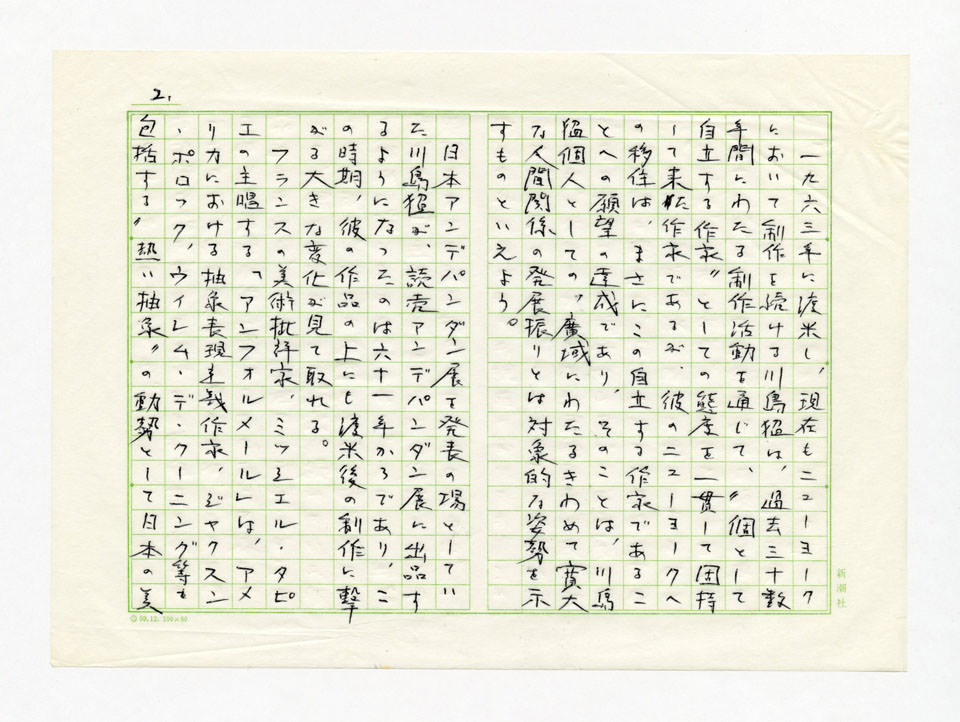 2.
一九六三年に渡米し、現在もニューヨーク
において制作を続ける川島猛は、過去三十数
年間にわたる制作活動を通じて、〝個として
自立する作家〟としての態度を一貫して固持
して来た作家であるが、彼のニューヨークへ
の移住は、まさにこの自立する作家であるこ
とへの願望の達成であり、そのことは、川島
猛個人としての、広域にわたるきわめて寛大
な人間関係の発展振りとは対象的な姿勢を示
すものといえよう。
日本アンデパンダン展を発表の場としてい
た川島猛が、読売アンデパンダン展に出品す
るようになったのは六十一年からであり、こ
の時期、彼の作品の上にも渡米後の制作に撃
がる大きな変化が見て取れる。
フランスの美術批評家、ミッシェル・タピ
エの主唱する「アンフォルメール」は、アメ
リカにおける抽象表現主義作家、ジャクスン
・ポロック、ウイレム・デ・クーニング等も
包括する〝熱い抽象〟の動勢として日本の美
新潮社
59.12. 100×80